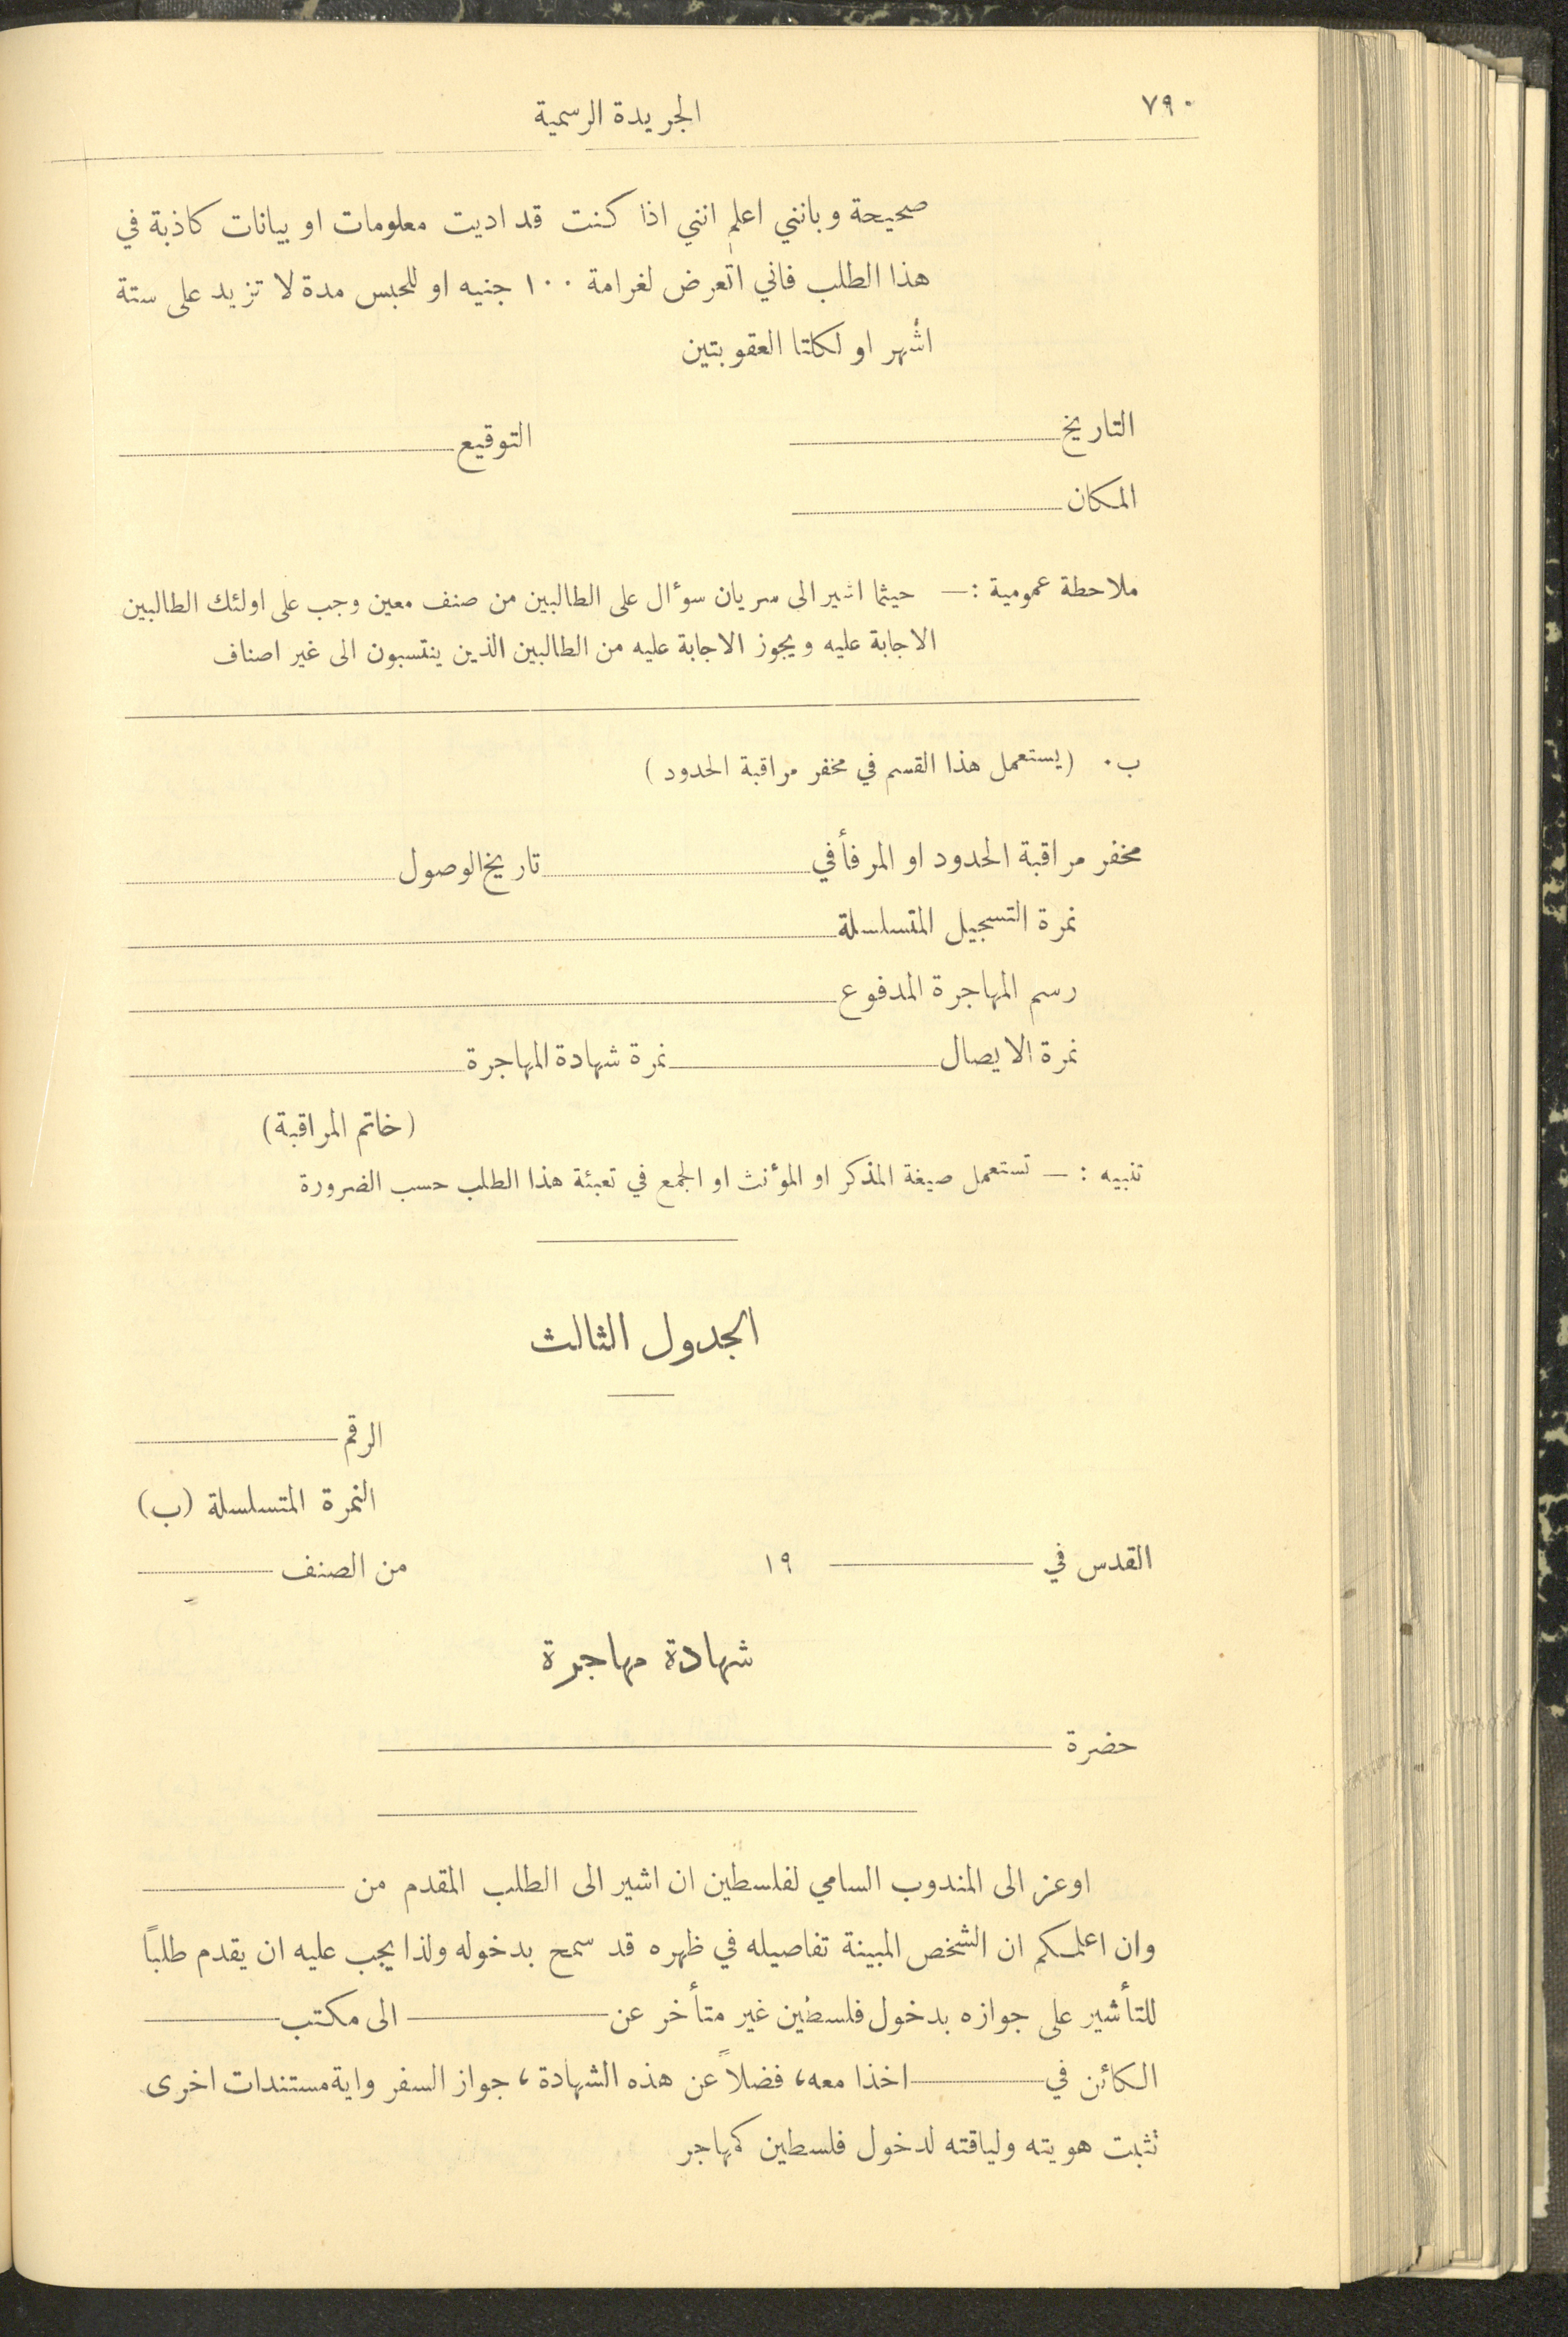 ٧٩٠
الجريدة الرسمية
صحيحة وبانني اعلم انني اذا كنت قد اديت معلومات او بيانات كاذبة في
هذا الطلب فاني اتعرض لغرامة ١٠٠ جنيه او للحبس مدة لا تزيد على ستة
اشهر او لكلتا العقوبتين
التاريخ التوقيع
المكان
ملاحظة عمومية :— حيثما اشير الى سريان سوٴال على الطالبين من صنف معين وجب على اولئك الطالبين
الاجابة عليه ويجوز الاجابة عليه من الطالبين الذين ينتسبون الى غير اصناف
ب. (يستعمل هذا القسم في مخفر مراقبة الحدود)
مخفر مراقبة الحدود او المرفأ في تاريخ الوصول
نمرة التسجيل المتسلسلة
رسم المهاجرة المدفوع
نمرة الايصال نمرة شهادة المهاجرة
(خاتم المراقبة)
تنبيه :— تستعمل صيغة المذكر او الموٴنث او الجمع في تعبئة هذا الطلب حسب الضرورة
الجدول الثالث
الرقم
النمرة المتسلسلة (ب)
القدس في ١٩ من الصنف
شهادة مهاجرة
حضرة
اوعز الى المندوب السامي لفلسطين ان اشير الى الطلب المقدم من
وان اعلمكم ان الشخص المبينة تفاصيله في ظهره قد سمح بدخوله ولذا يجب عليه ان يقدم طلباً
للتأشير على جوازه بدخول فلسطين غير متأخر عن الى مكتب
الكائن في اخذا معه، فضلاً عن هذه الشهادة، جواز السفر واية مستندات اخرى
تثبت هويته ولياقته لدخول فلسطين كمهاجر